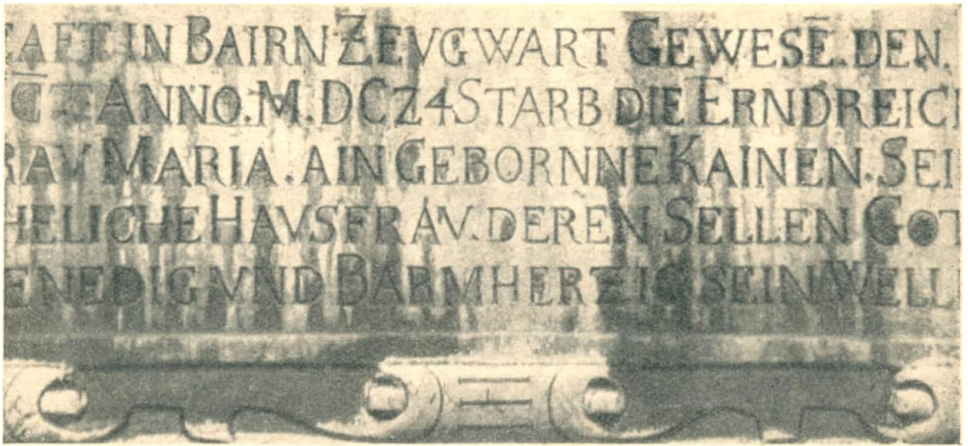 AFT. IN BAIRN ZEVGWART GEWESĒ. DEN.
ANNO. M. DCZ4 STARB DIE ERNDREICH
RAV MARIA. AIN GEBORNNE KAINEN. SEI
HELICHE HAVSFRAV. DEREN SELLEN GOT
ENEDIG VND BARMHERZIG SEIN WELL